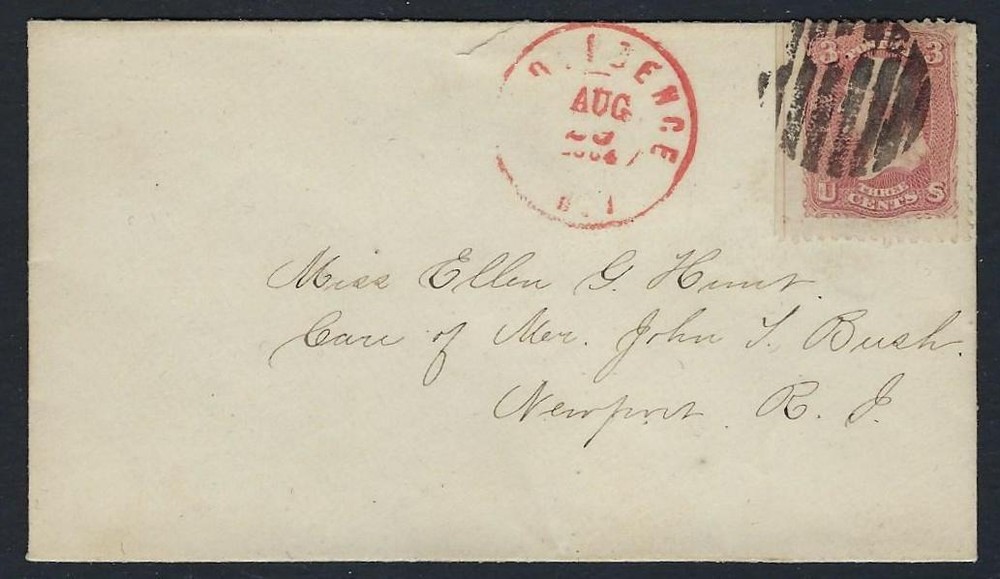 3 3
AUG
U THREE S
CENTS
Miss Ellen G. Hunt.
Care of Mr. John T. Bush.
Newport R. I.